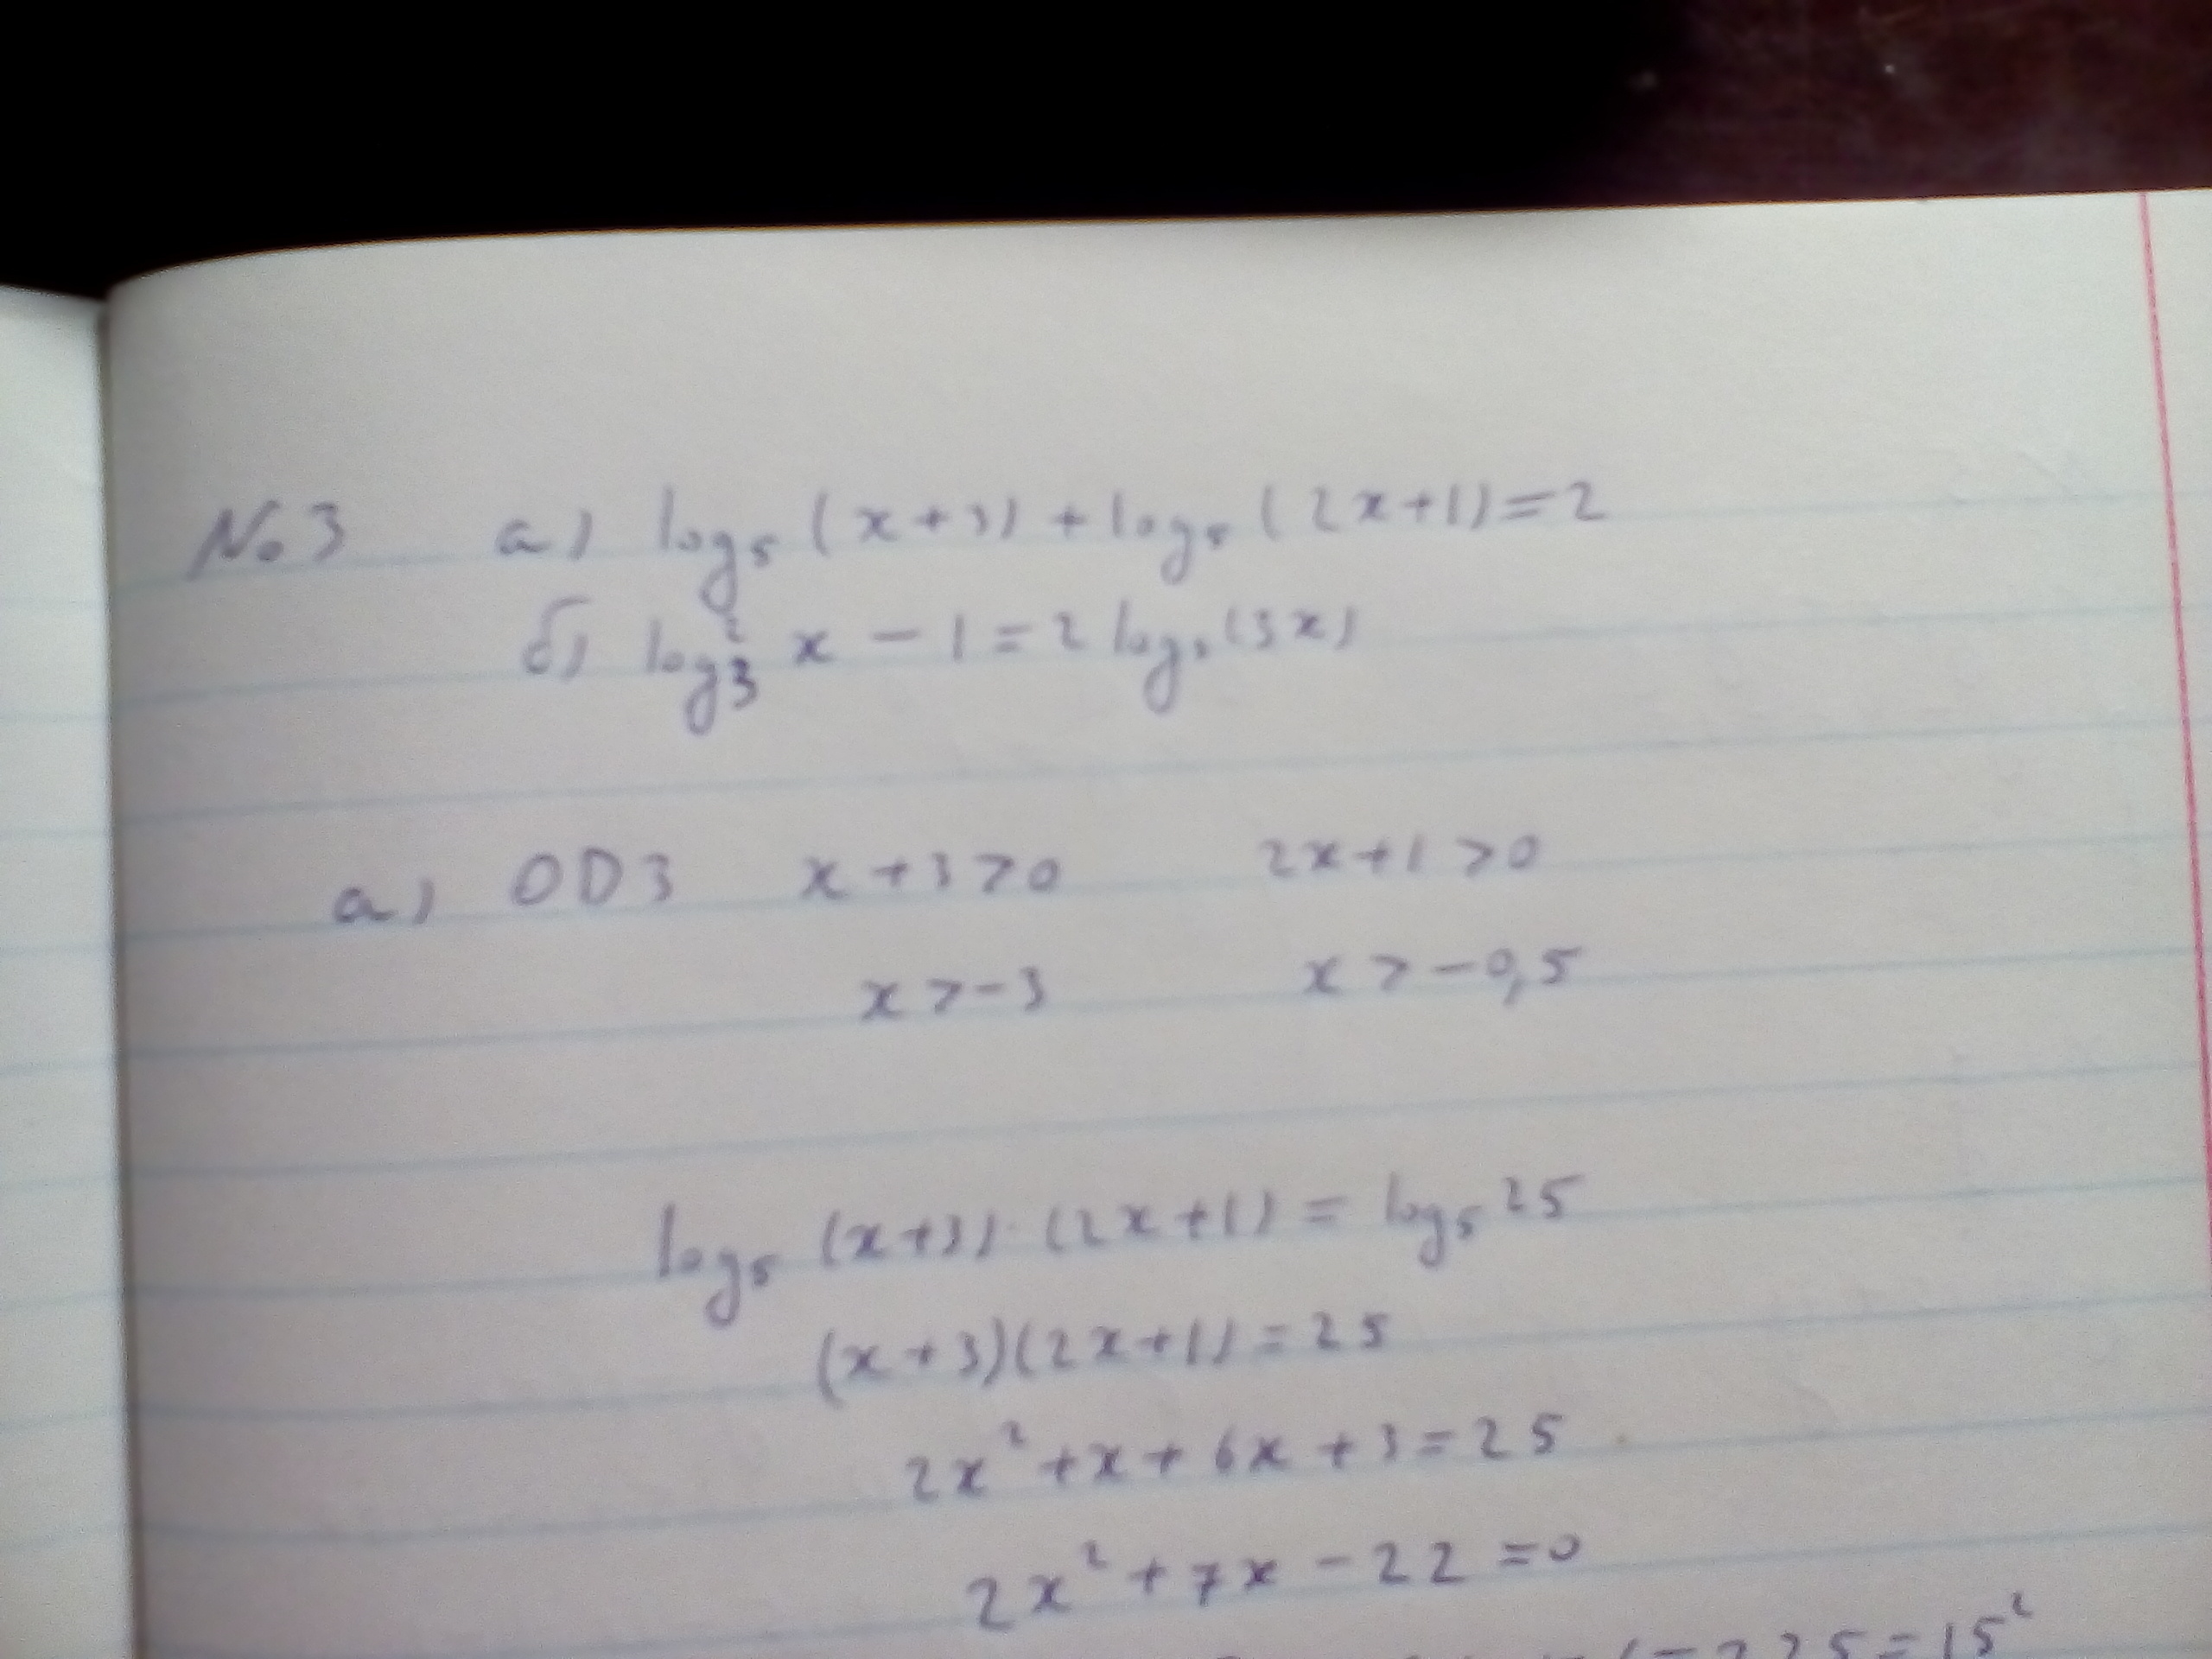 №3 а) log₅ (x+3) + log₅ (2x+1)=2
б) log₃² x − 1 = 2 log₃(3x)
а) ОДЗ x+3>0 2x+1>0
x>-3 x>-0,5
log₅ (x+3)·(2x+1) = log₅ 25
(x+3)(2x+1)=25
2x²+x+6x+3=25
2x²+7x-22=0
=225=15²